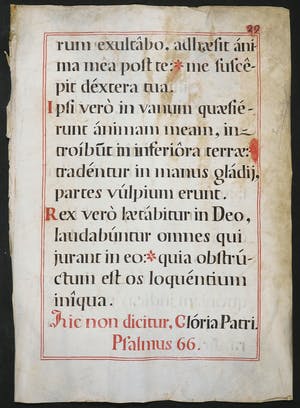 99
rum exultâbo, adhæsit áni
ma mea post te:* me suscê-
pit déxtera tua.
Ipsi verò in vanum quæsié-
runt ánimam meam, in-
troíbũt in inferiôra terræ:
tradéntur in manus gládij,
partes vúlpium erunt.
Rex verò lætábitur in Deo,
laudabúntur omnes qui
jurant in eo:* quia obstrú-
ctum est os loquéntium
inîqua.
Hic non dicitur, Glória Patri.
Psalmus 66.